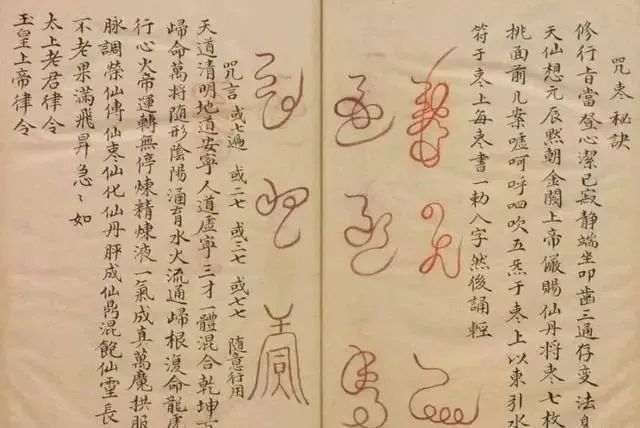 咒棗祕訣
修行旨當登心潔己寂靜端坐叩齒三通存变法身
天仙想元辰黙朝金闕上帝儼賜仙丹將棗七枚
挑面前几案噓呵呼呬吹五炁于棗上以東引水
符于棗上每棗書一勅八字然後誦輕
咒言 或七遍 或二七 或三七 或七七 隨意行用
天道清明地道安寧人道虛寧三才一體混合乾坤百
歸命萬将隨形陰陽涌育水火流通歸根復命龍虎
行心火帝運轉無停煉精煉液一氣成真萬魔拱服
脉調榮仙傳仙棗仙化仙丹肧成仙鼎混飽仙靈長
不老果滿飛昇急〻如
太上老君律令
玉皇上帝律令